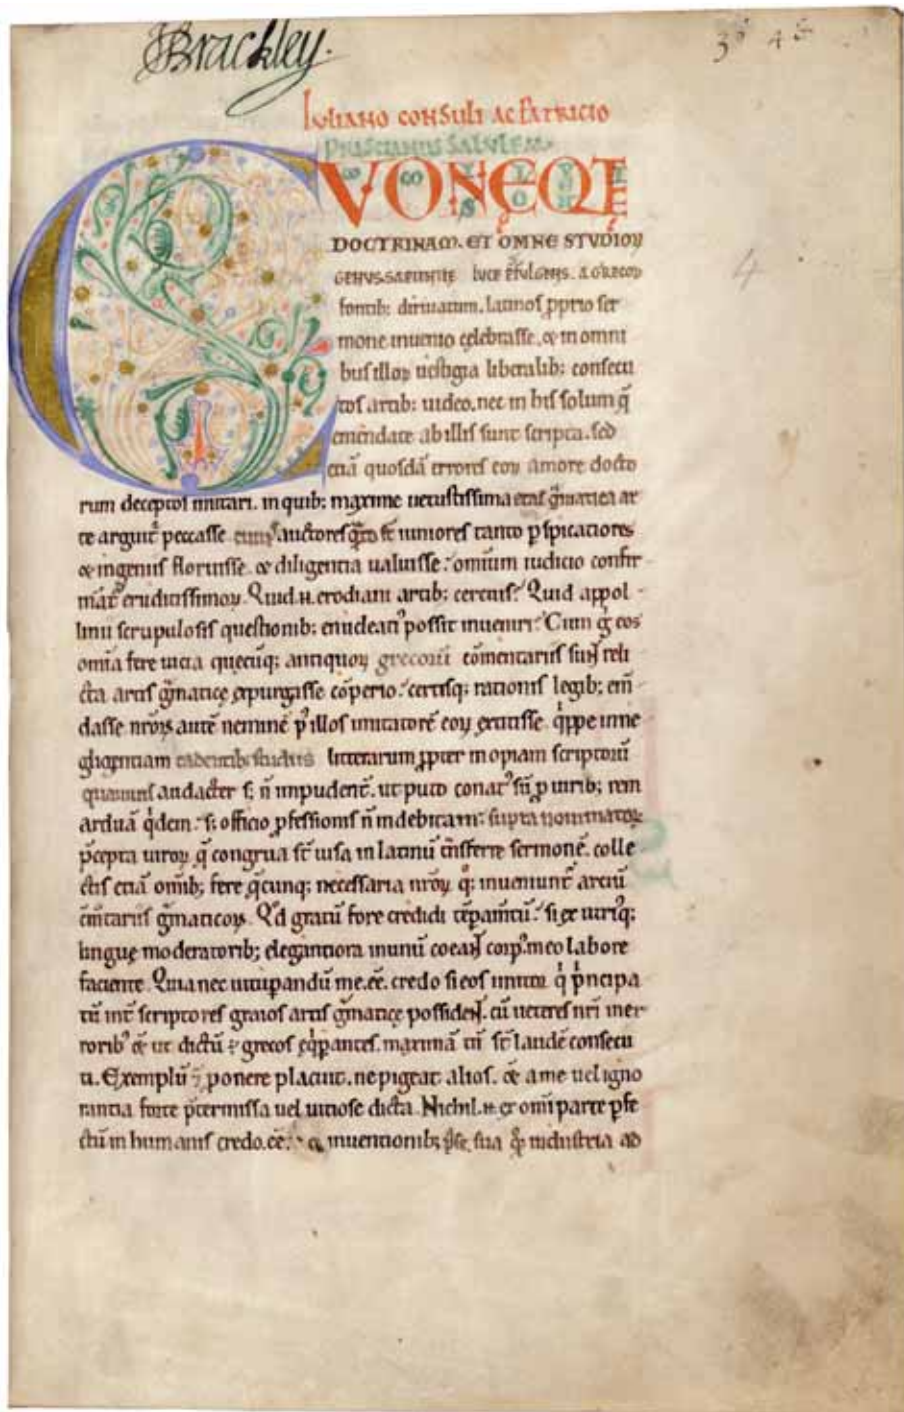 JBrackley.
3º 4
IULIANO CONSULI AC PATRICIO
PRISCIANUS SALUTEM
C
VO NEQT
DOCTRINAM. ET OMNE STVDIOꝝ
GENUS. SAPIENTIE luce p̄fulgens. A GRECOꝝ
4
fontib; diriuatum. latinos ꝓprio ser
mone inuenio celebrasse. & in omni
bus illoꝝ uestigia liberalib; consecu
tos artib; uideo. nec in his solum q̄
emendate ab illis sunt scripta. sed
etiā quosdā errores eoꝝ amore docto
rum deceptos imitari. in quib; maxime uetustissima etas g̃matica ar
te arguit᷑ peccasse cuius auctores q̃to st̄ iuniores tanto ꝑspicatiores
& ingeniis floruisse. & diligentia ualuisse. omnium iudicio confir
mat᷑ eruditissimoꝝ. Quid .n. erodiani artib; certius? Quid appol
linii scrupulosis questionib; enucleati᷒ possit inueniri? Cum g̊ eos
omīa fere uicia quecūq; antiquoꝝ grecorū cōmentariis sunt reli
cta artis g̃maticę expurgasse cōperio. certisq; rationis legib; em̄
dasse nr̄oꝝ autē neminē p᷒ illos imitatorē eoꝝ extitisse. q̊ppe in ne
gligentiam cadentib; studiis litterarum ꝓpter inopiam scriptorū
quamuis audacter s; n̄ impudent᷑. ut puto conat᷒ sū ꝓ uirib; rem
arduā q̊dem. s; officio ꝓfessionis n̄ indebitam. supra nominatoꝝ
p̄cepta uiroꝝ q̄ congrua st̄ uisa in latinū t̃nsferre sermonē. colle
ctis etiā omīb; fere q̄cunq; necessaria nr̄oꝝ q̊q; inueniunt᷑ artiū
cōm̄tariis g̃maticoꝝ. Qd̄ gratū fore credidi tēpam̄tū. si ex utriq;
linguę moderatorib; elegantiora in unū coeant corp᷒ meo labore
faciente. Quia nec uitupandū me .ēē. credo si eos imitor q̊ p̊ncipa
tū int᷑ scriptores graios artis g̃maticę possident. cū ueteres nr̄i in er
rorib᷒ & ut dictū ē grecos eq̊pantes. maximā tn̄ st̄ laudē consecu
ti. Exemplū ponere placuit. ne pigeat alios. & a me uel igno
rantia forte p̄termissa uel uitiose dicta. Nichil .n. ex omī parte ꝑfe
ctū in humanis credo .ēē. inuentionib; sua q̊q; industria ad